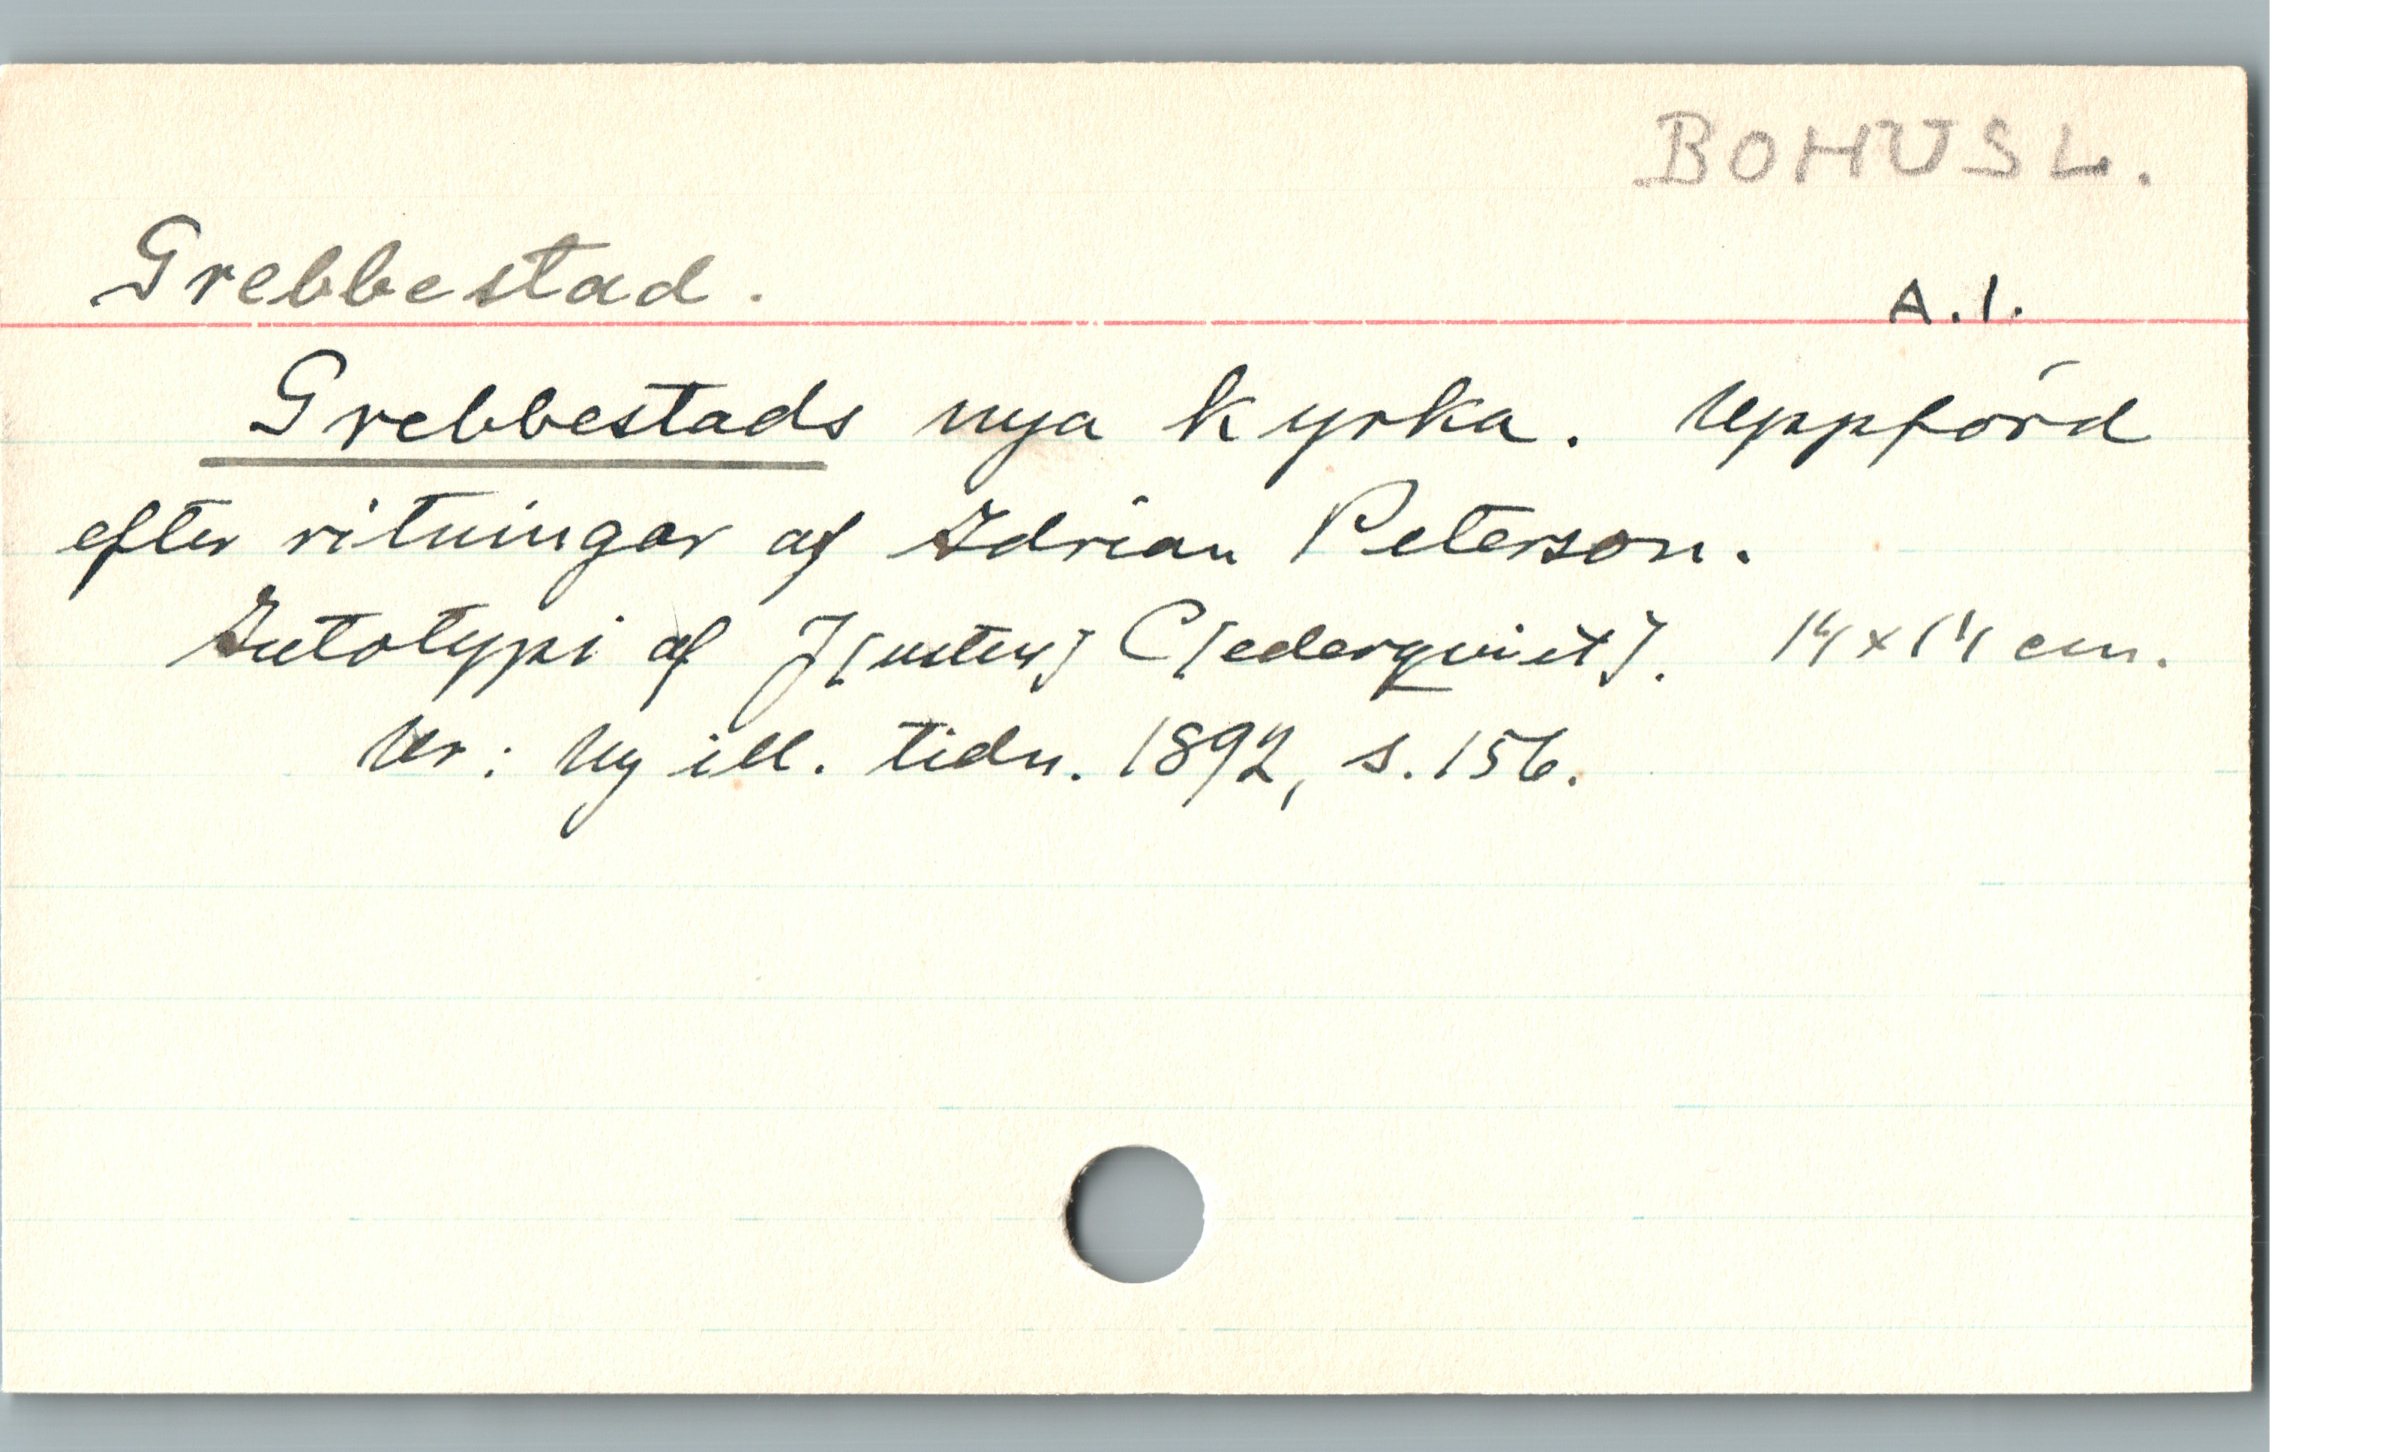 BOHUSL.
Grebbestad.
A.1.
Grebbestads nya kyrka. Uppförd
efter ritningar af Adrian Peterson.
Autotypi af J[ustus] C[ederquist]. 14x14 cm.
Ur: Ny ill. tidn. 1892, s. 156.